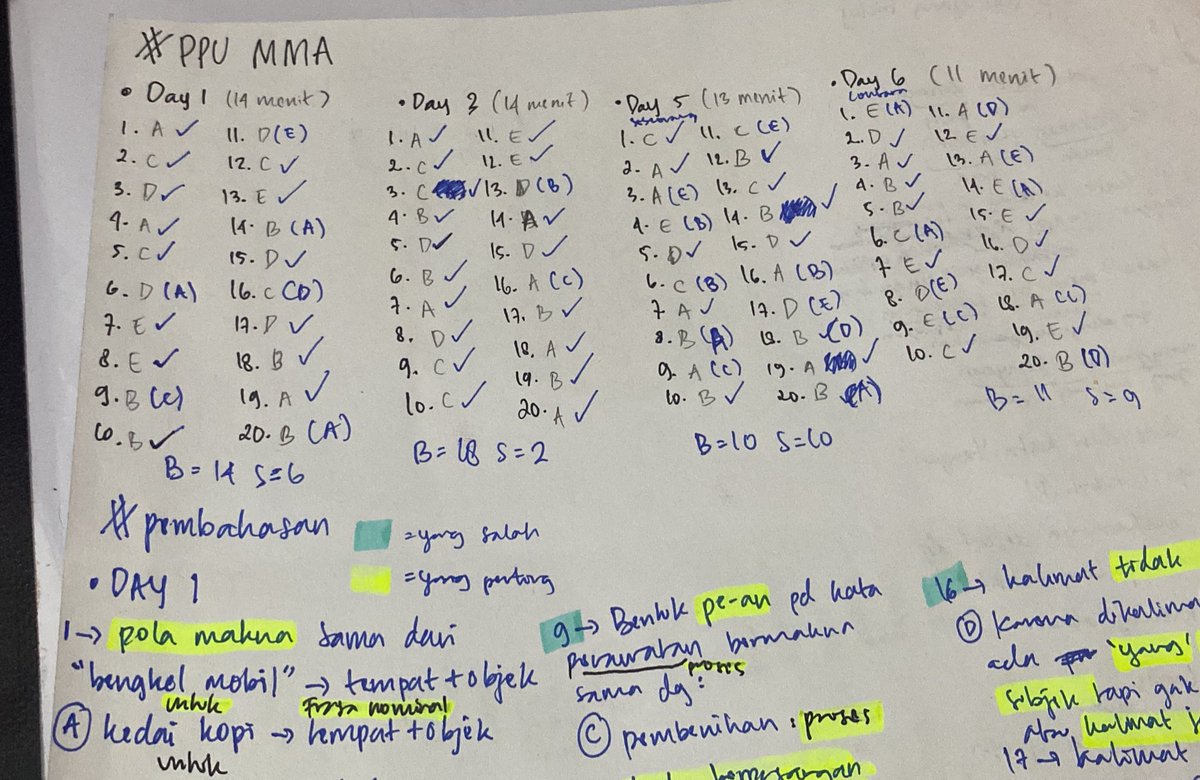 # PPU MMA
• Day 1 (14 menit)
1. A ✓ 11. D (E)
2. C ✓ 12. C ✓
3. D ✓ 13. E ✓
4. A ✓ 14. B (A)
5. C ✓ 15. D ✓
6. D (A) 16. C (D)
7. E ✓ 17. D ✓
8. E ✓ 18. B ✓
9. B (C) 19. A ✓
10. B ✓ 20. B (A)
B = 14 S = 6
• Day 3 (14 menit)
1. A ✓ 11. E ✓
2. C ✓ 12. E ✓
3. C ✓ 13. D (B)
4. B ✓ 14. A ✓
5. D ✓ 15. D ✓
6. B ✓ 16. A (C)
7. A ✓ 17. B ✓
8. D ✓ 18. A ✓
9. C ✓ 19. B ✓
10. C ✓ 20. A ✓
B = 18 S = 2
• Day 5 (13 menit)
1. C ✓ 11. C (E)
2. A ✓ 12. B ✓
3. A (E) 13. C ✓
4. E (B) 14. B ✓
5. D ✓ 15. D ✓
6. C (B) 16. A (B)
7. A ✓ 17. D (E)
8. B (A) 18. B (D)
9. A (C) 19. A ✓
10. B ✓ 20. B (A)
B = 10 S = 10
• Day 6 (11 menit)
1. E (A) 11. A (D)
2. D ✓ 12. E ✓
3. A ✓ 13. A (E)
4. B ✓ 14. E (A)
5. B ✓ 15. E ✓
6. C (A) 16. D ✓
7. E ✓ 17. C ✓
8. D (E) 18. A (C)
9. E (C) 19. E ✓
10. C ✓ 20. B (D)
B = 11 S = 9
# pembahasan
= yang salah
= yang penting
• DAY 1
1 → pola makna sama dari
"bengkel mobil" → tempat + objek
untuk frasa nominal
(A) kedai kopi → tempat + objek
untuk
9 → Bentuk pe-an pd kata
perawatan bermakna
proses
sama dg :
(C) pembenihan : proses
16 → kalimat tidak
(D) karena dikalima
ada 'yang'
subjek tapi gak
atau kalimat
17 → kalimat